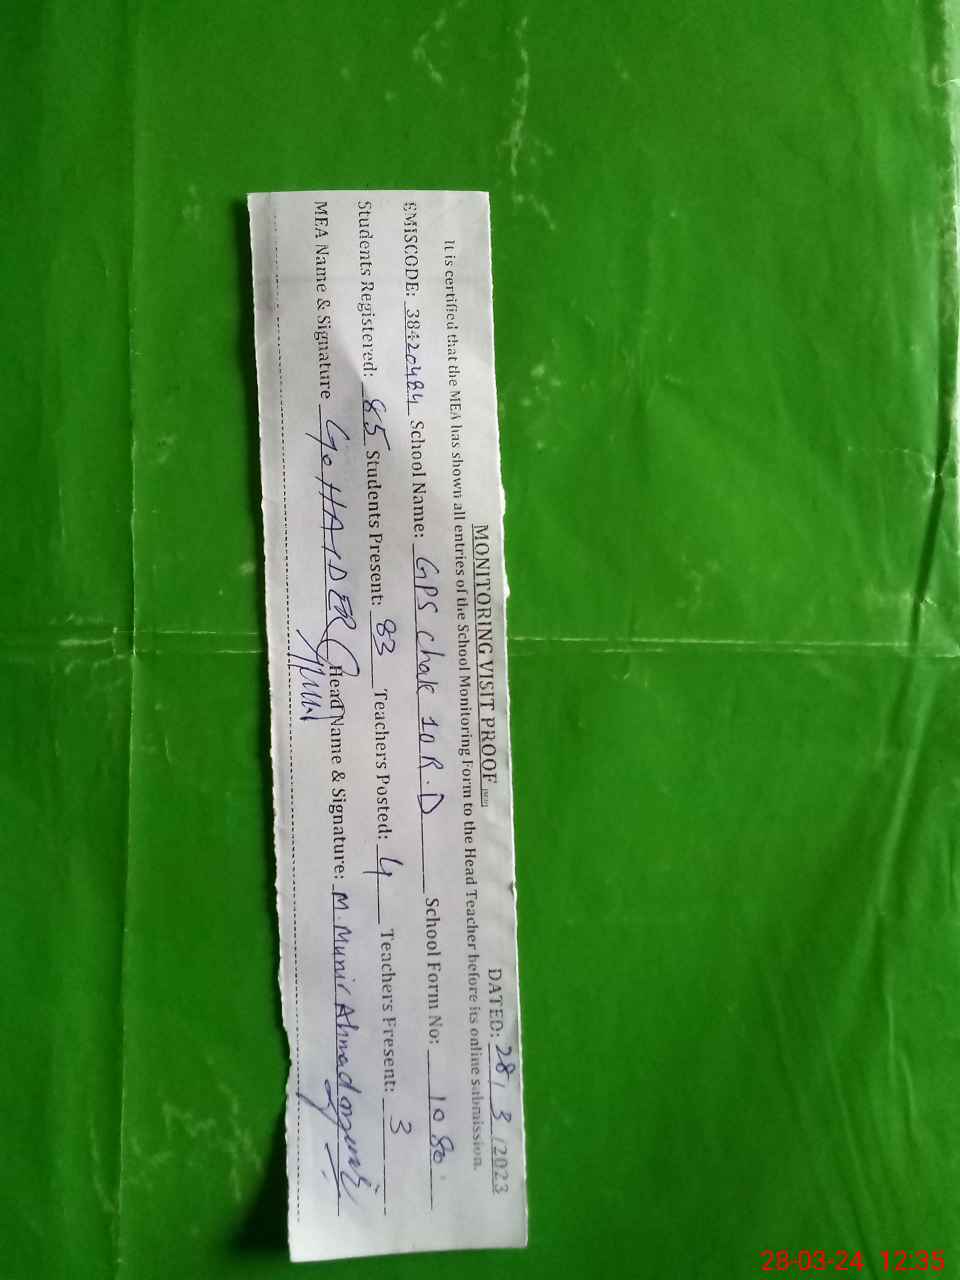 MONITORING VISIT PROOF
DATED: 28/3/2023
It is certified that the MEA has shown all entries of the School Monitoring Form to the Head Teacher before its online submission.
EMISCODE: 38420484 School Name: GPS chak 10 R.D School Form No: 1080
Students Registered: 85 Students Present: 83 Teachers Posted: 4 Teachers Present: 3
MEA Name & Signature G. HAIDER Head Name & Signature: M. Munir Ahmad
28-03-24 12:35